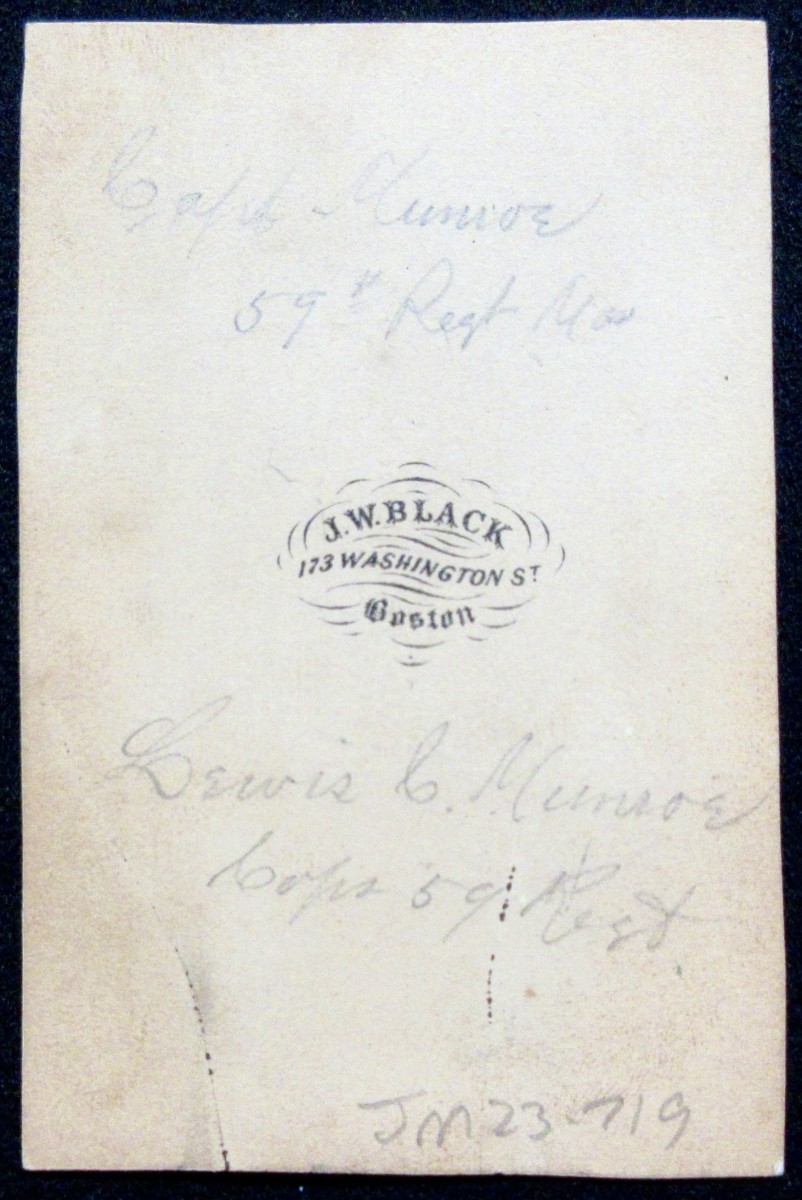 Capt Munroe
59th Regt Mas
J.W. BLACK
173 WASHINGTON ST
Boston
Lewis C. Munroe
59 Regt.
JM23-719